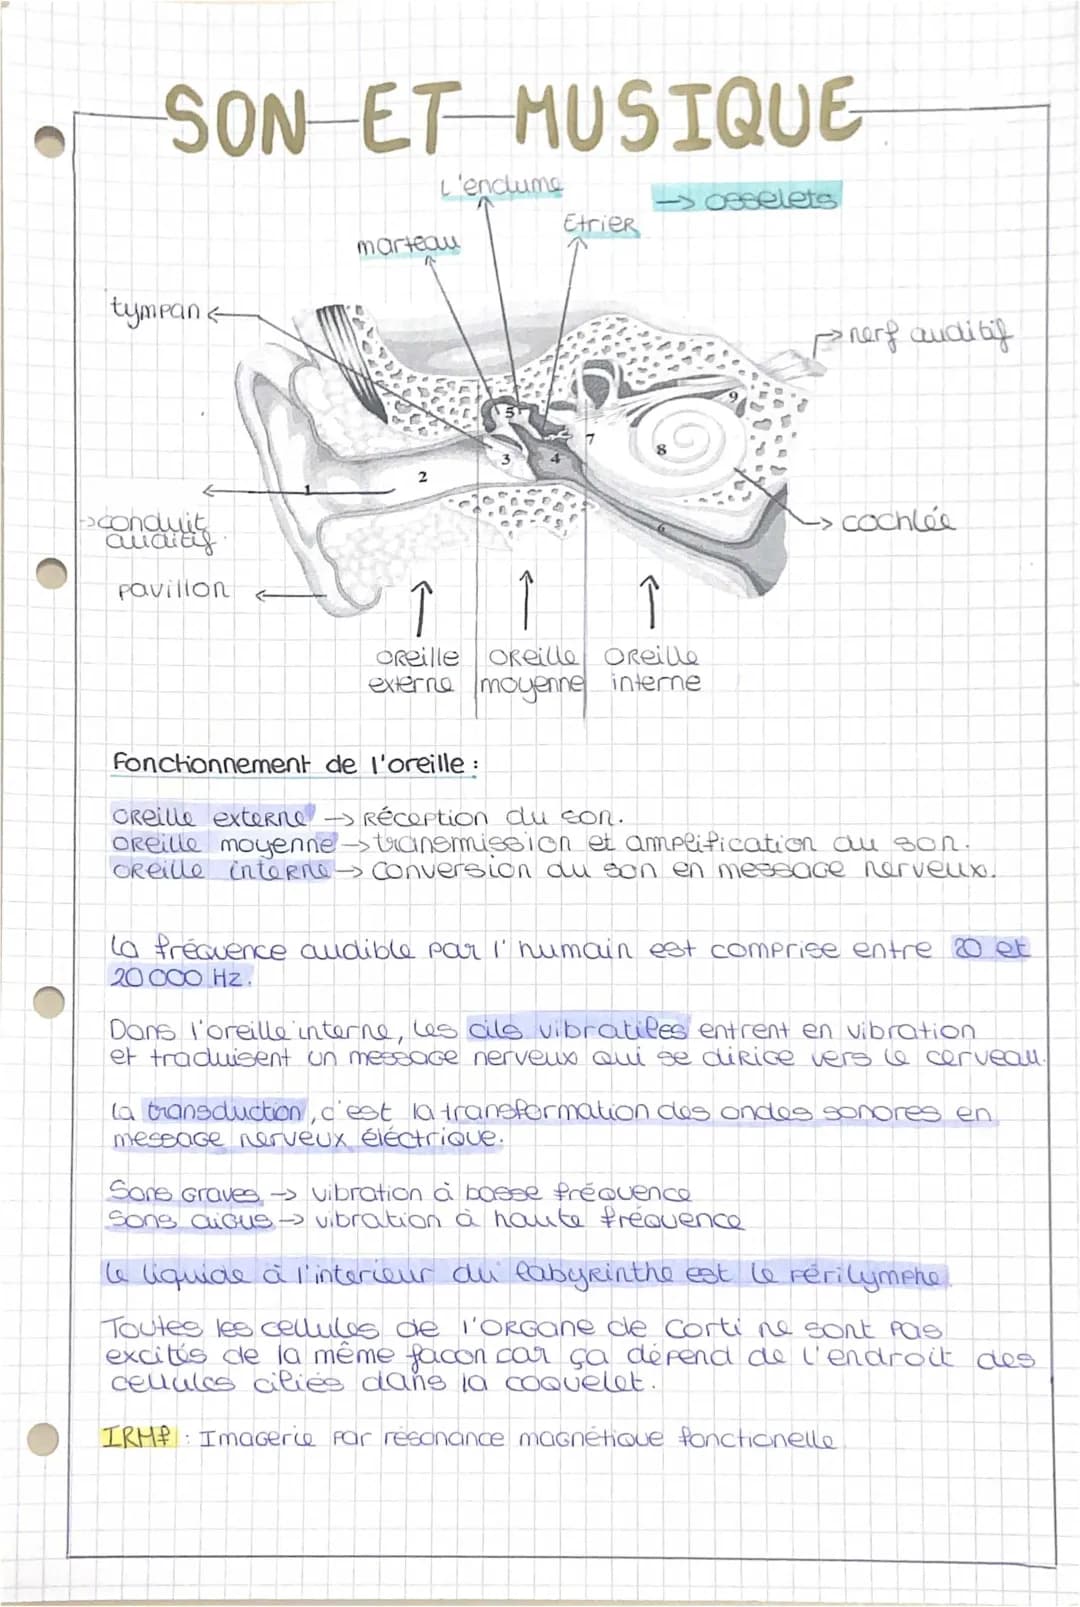 SON ET MUSIQUE
L'enclume
→ osselets
Etrier
marteau
tympan
nerf auditif
9
5
7
8
3
4
2
1
6
→ conduit
auditif
cochlée
pavillon
oreille externe
oreille moyenne
oreille interne
Fonctionnement de l'oreille :
oreille externe → Réception du son.
oreille moyenne → transmission et amplification du son.
oreille interne → Conversion du son en message nerveux.
La fréquence audible par l'humain est comprise entre 20 et
20 000 Hz.
Dans l'oreille interne, les cils vibratiles entrent en vibration
et traduisent un message nerveux qui se dirige vers le cerveau.
La transduction, c'est la transformation des ondes sonores en
message nerveux éléctrique.
Sons graves → vibration à basse fréquence
Sons aigus → vibration à haute fréquence
Le liquide à l'interieur du labyrinthe est le périlymphe.
Toutes les cellules de l'organe de Corti ne sont pas
excités de la même facon car ça dépend de l'endroit des
cellules ciliés dans la coquelet.
IRMf : Imagerie par résonance magnétique fonctionelle